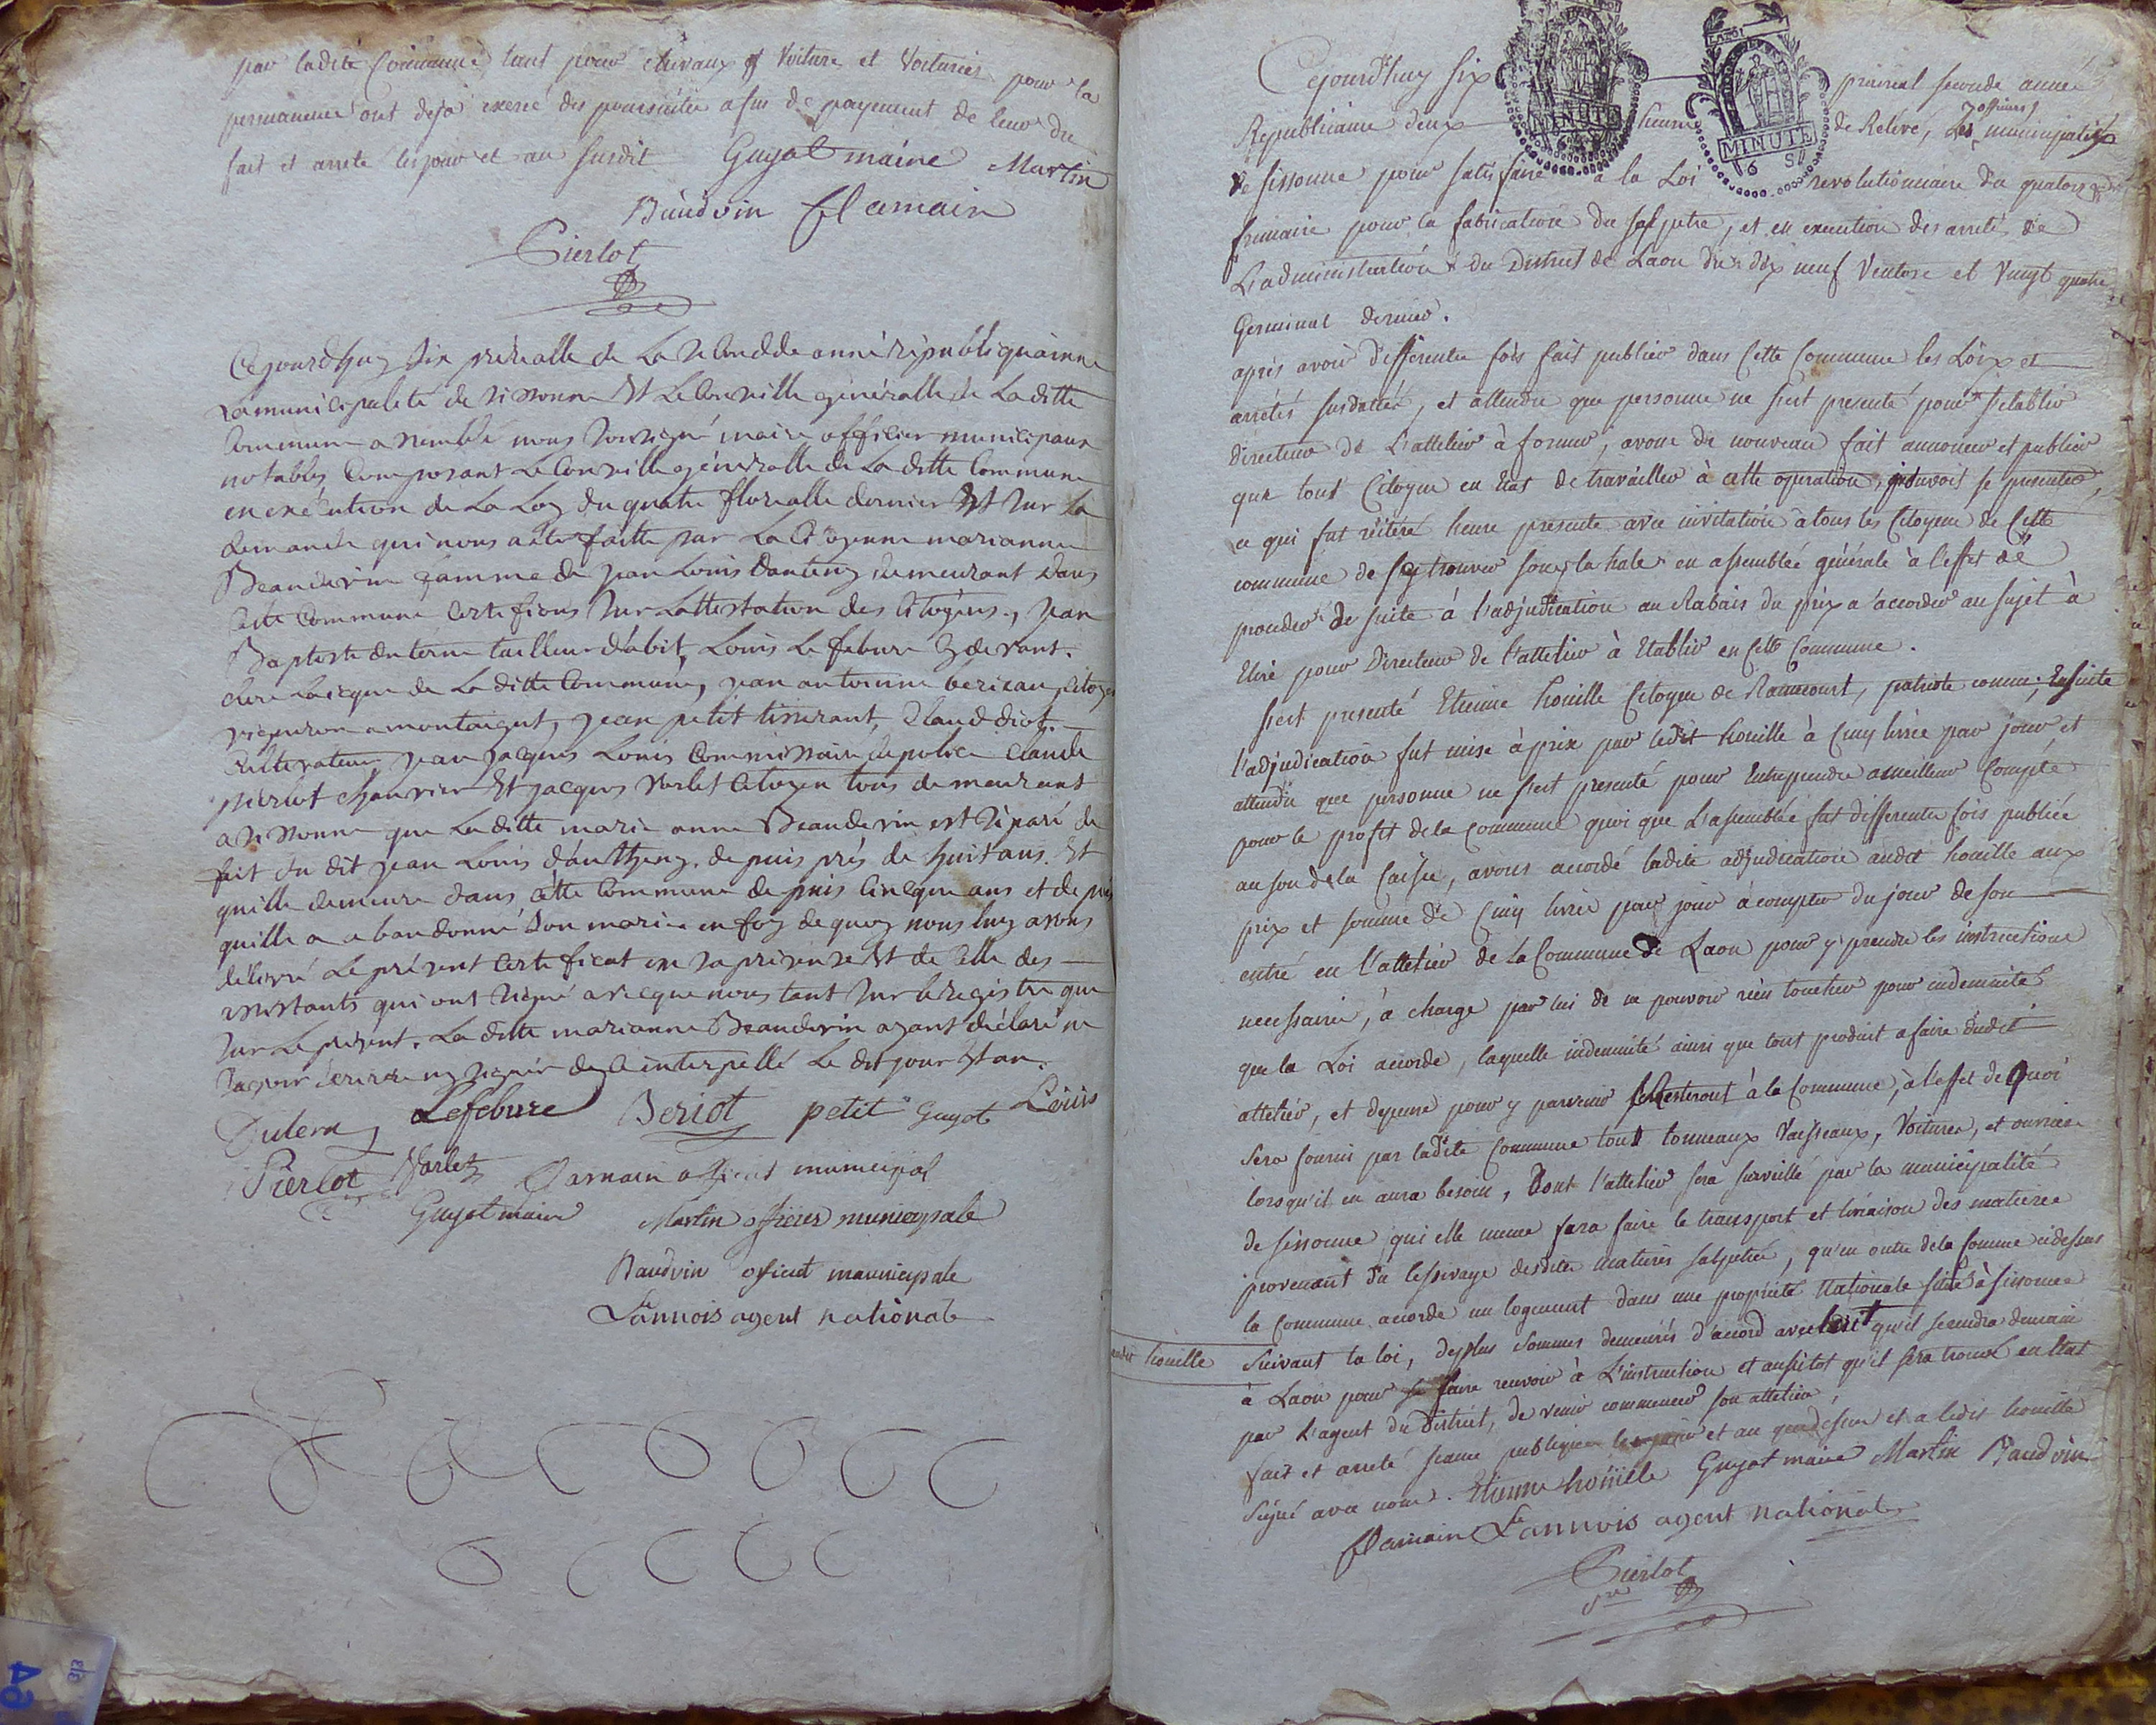 par ladite Commune tant pour chevaux et Voiture et Voituriers pour la
permanence ont deja exercé des poursuites afin de payement de leur du
fait et arreté les jour et an susdit Guyot maire Martin
Baudvin flamain
Pierlot
Cejourdhuy six prérialle de La secondde anné républiquainne
Lamunicipalité de sissonne Et Le Conseille généralle de La ditte
Commune assemblé nous soussigné maire officier municipaux
notables Composant Le Conseille généralle de La ditte Commune
en exécution de La Loy du quatre florealle dernier Et sur La
demande qui nous a été faitte par La Citoyenne marianne
Beauderin famme de jean Louis danteny demeurant dans
cette Commune Certifions sur Lattestation des Citoyens, jean
Baptiste duterne tailleur dabit, Louis Lefebure cy devant.
clerc laicque de La ditte Commune, jean antoinne béricau citoyen
vigneron a montaigut, jean petit tisserant, Claud diot.
Cultivateur jean jacques Louis Commissaire de police Claude
pierlot chanvrier Et jacques varlet Citoyen tous demeurant
a sissonne que La ditte marie anne Beauderin est séparé de
fait du dit jean Louis d'autheny. depuis prés de huit ans. Et
quille demeure dans cètte Commune depuis Cincque ans et depuis
quille a abandonné son mari. en foy de quoy nous luy avons
délivré Le présent Certificat en sa présense Et de Celle des
assistants qui ont signé avecque nous tant sur le registre que
sur Le présent. La ditte marianne Beauderin ayant déclaré ne
savoir écrire ny signér de ce interpellé Le dit jour Et an.
Dutern Lefebure Beriot petit Guyot Louis
Pierlot Varlet Darnain officier municipal
Guyot maire Martin officier municipale
Baudvin oficier municipale
Lannois agent nationale
Cejourd'huy six prairial seconde année
Republicaine deux heure de Relevé, Les officiers municipaux
de sissonne pour satisfaire a la Loi revolutionnaire du quatorze
frimaire pour la fabrication du salpetre, et en execution des arretés de
L'administration du District de Laon du dix neuf Ventose et Vingt quatre
Germinal dernier.
après avoir differentes fois fait publier dans Cette Commune les Loix et
arretés susdattés, et attendu que personne ne s'est presenté pour s'etablir
directeur de L'attelier à former, avons de nouveau fait annoncer et publier
que tout Citoyen en Etat de travailler à cette operation, pouvoit se presenter,
ce qui fut réiteré heure presente avec invitation à tous les Citoyens de Cette
commune de s'y trouver sous la hale en assemblée générale à l'effet de
proceder de suite à l'adjudication au Rabais du prix a accorder au sujet à
Elire pour Directeur de l'attelier à Etablir en Cette Commune.
s'est presenté Etienne houille Citoyen de Ramecourt, patriote connu, Ensuite
l'adjudication fut mise à prix par ledit houille à Cinq livres par jour et
attendu que personne ne s'est presenté pour Entreprendre a meilleur Compte
pour le profit de la Commune quoi que L'assemblée fut differentes fois publiée
au son de la Caisse, avons accordé ladite adjudication audit houille aux
prix et somme de Cinq livres par jour à compter du jour de son
entré en l'attelier de la Commune de Laon pour y prendre les instructions
necessaires, à charge par lui de ne pouvoir rien toucher pour indemnité
que la Loi accorde, laquelle indemnité ainsi que tout produit a faire dudit
attelier, et depense pour y parvenir resteront à la Commune, à l'effet de quoi
sera fourni par ladite Commune tout tonneaux Vaisseaux, Voitures, et ouvriers
lorsqu'il en aura besoin, Dont l'attelier sera surveillé par la municipalité
de sissonne qui elle meme fera faire le transport et livraison des matieres
provenant du lessivage desdites matieres salpetré, qu'en outre de la somme cidessus
la Commune accorde un logement dans une propriété Nationale située à sissonne
audit houille
suivant la loi, deplus sommes demeurés d'accord avec qu'il se rendra demain
à Laon pour se faire recevoir à L'instruction et aussitot qu'il sera trouvé en Etat
par L'agent du District, de venir commencer son attelier,
fait et arreté seance publique les jour et an que dessus et a ledit houille
signé avec nous. Etienne hoüille Guyot maire Martin Baudvin
flamain Lannois agent national
Pierlot
MINUTE
MINUTE
6 S